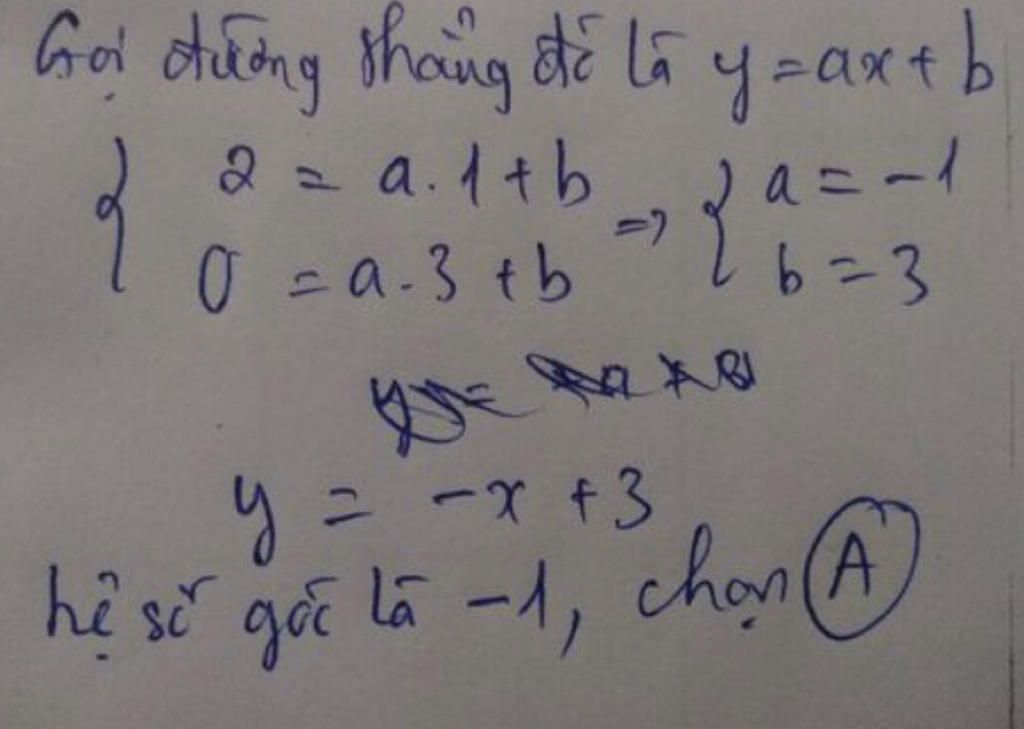 Gọi đường thẳng đó là y = ax + b
{ 2 = a.1 + b
0 = a.3 + b
=> { a = -1
b = 3
y = -x + 3
hệ số góc là -1, chọn A